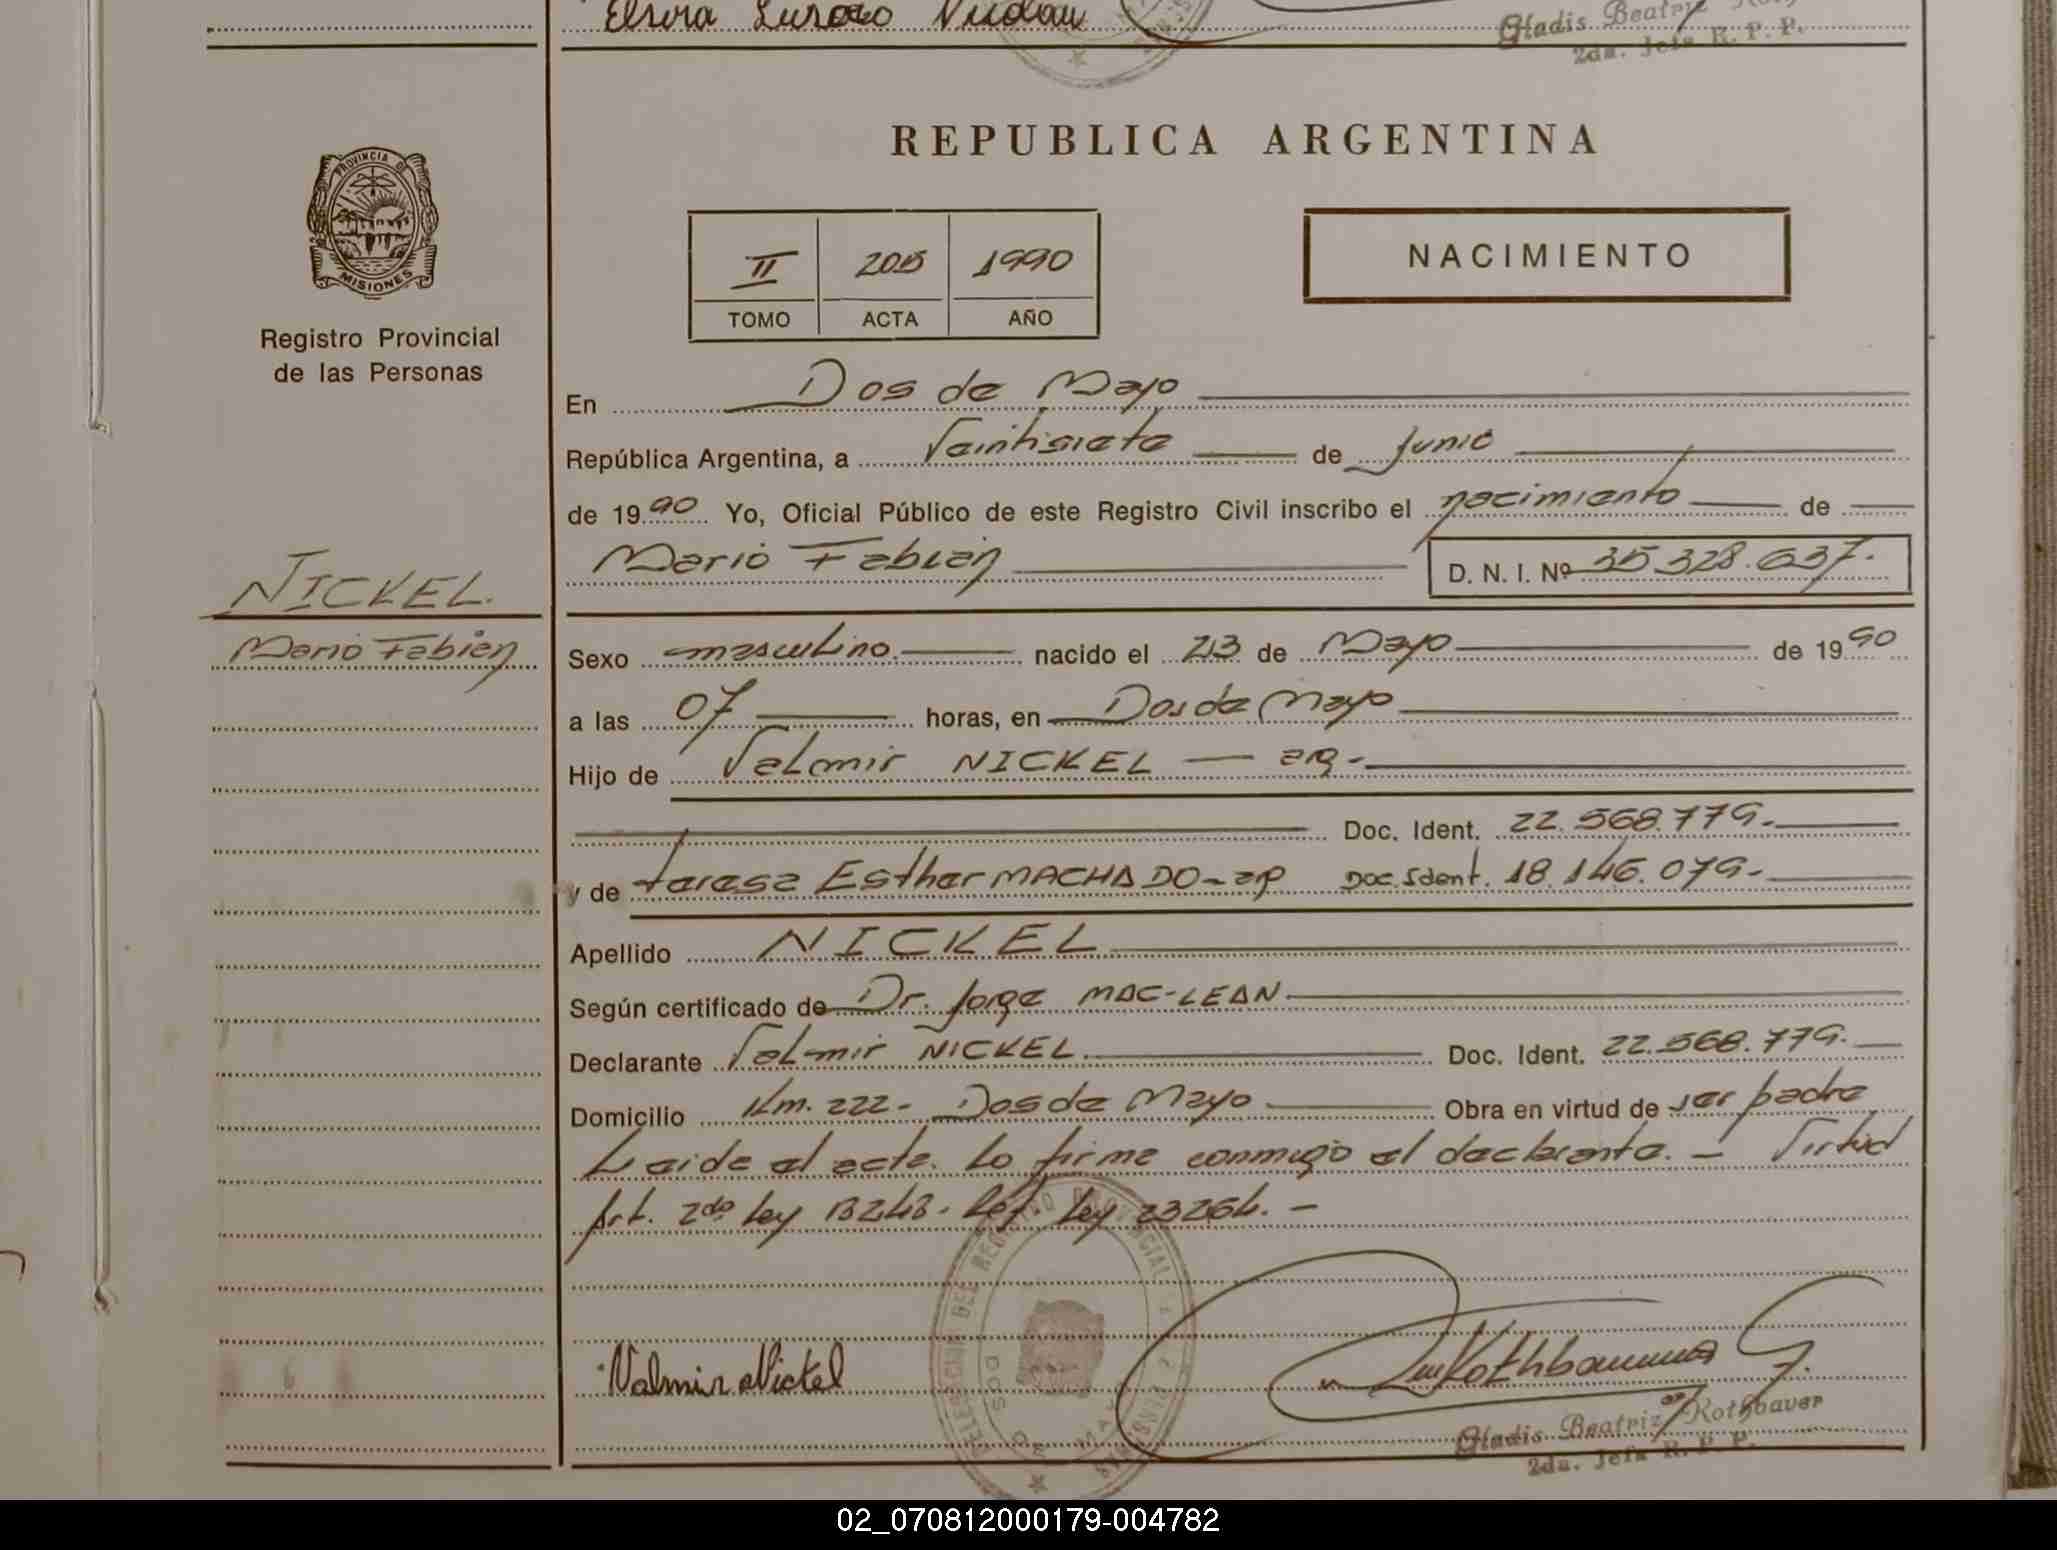 Gladis Beatriz
2da. Jefa R. P. P.
PROVINCIA DE
MISIONES
Registro Provincial
de las Personas
REPUBLICA ARGENTINA
II 205 1990
TOMO ACTA AÑO
NACIMIENTO
En Dos de Mayo
República Argentina, a Veintisiete de Junio
de 1990 Yo, Oficial Público de este Registro Civil inscribo el nacimiento de
Mario Fabián D. N. I. Nº 35 328.637.
NICKEL.
Mario Fabián
Sexo masculino. nacido el 23 de Mayo de 1990
a las 07 horas, en Dos de Mayo
Hijo de Valmir NICKEL — arg.
Doc. Ident. 22.568.779.
y de teresa Esther MACHADO - arg Doc. Ident. 18.146.079.
Apellido NICKEL
Según certificado de Dr. Jorge MAC-LEAN
Declarante Valmir NICKEL. Doc. Ident. 22.568.779.
Domicilio Km. 222 - Dos de Mayo Obra en virtud de ser padre
Leída el acta. Lo firma conmigo el declarante. — Virtud
Art. 2do Ley 13248. Ref. Ley 23264. —
Valmir Nickel
Gladis Beatriz Rothbauer
2da. Jefa R. P. P.
02_070812000179-004782